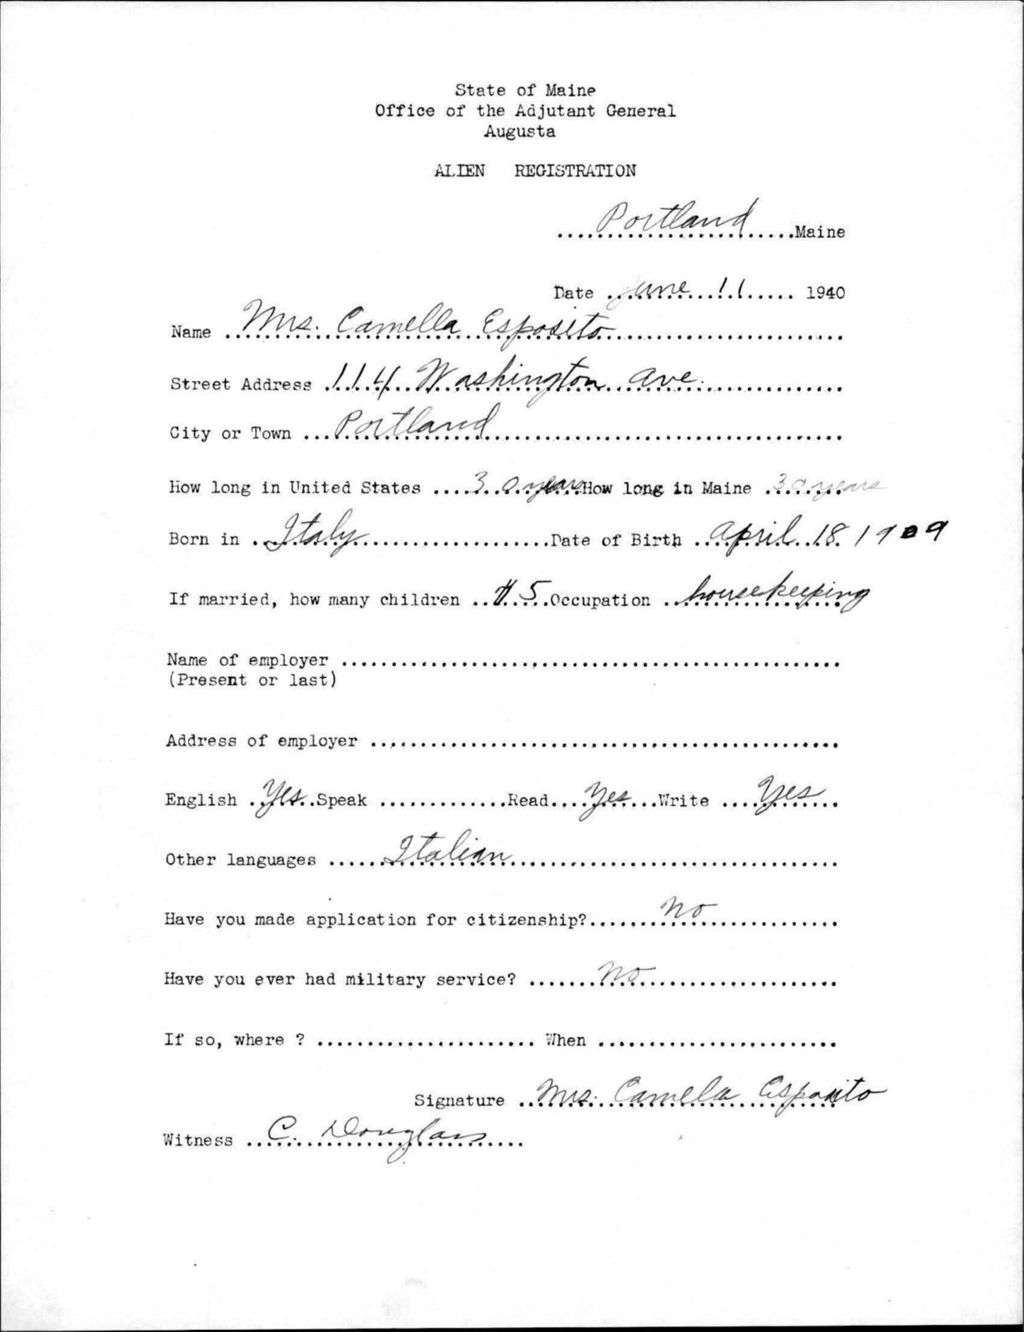 State of Maine
Office of the Adjutant General
Augusta
ALIEN REGISTRATION
Portland Maine
Date June 11 1940
Name Mrs. Camella Esposito
Street Address 114 Washington Ave.
City or Town Portland
How long in United States 30 years How long in Maine 30 years
Born in Italy Date of Birth April 18 1909
If married, how many children 5 Occupation housekeeping
Name of employer
(Present or last)
Address of employer
English Yes Speak Read Yes Write Yes
Other languages Italian
Have you made application for citizenship? No
Have you ever had military service? No
If so, where ? When
Signature Mrs. Camela Esposito
Witness C. Douglass